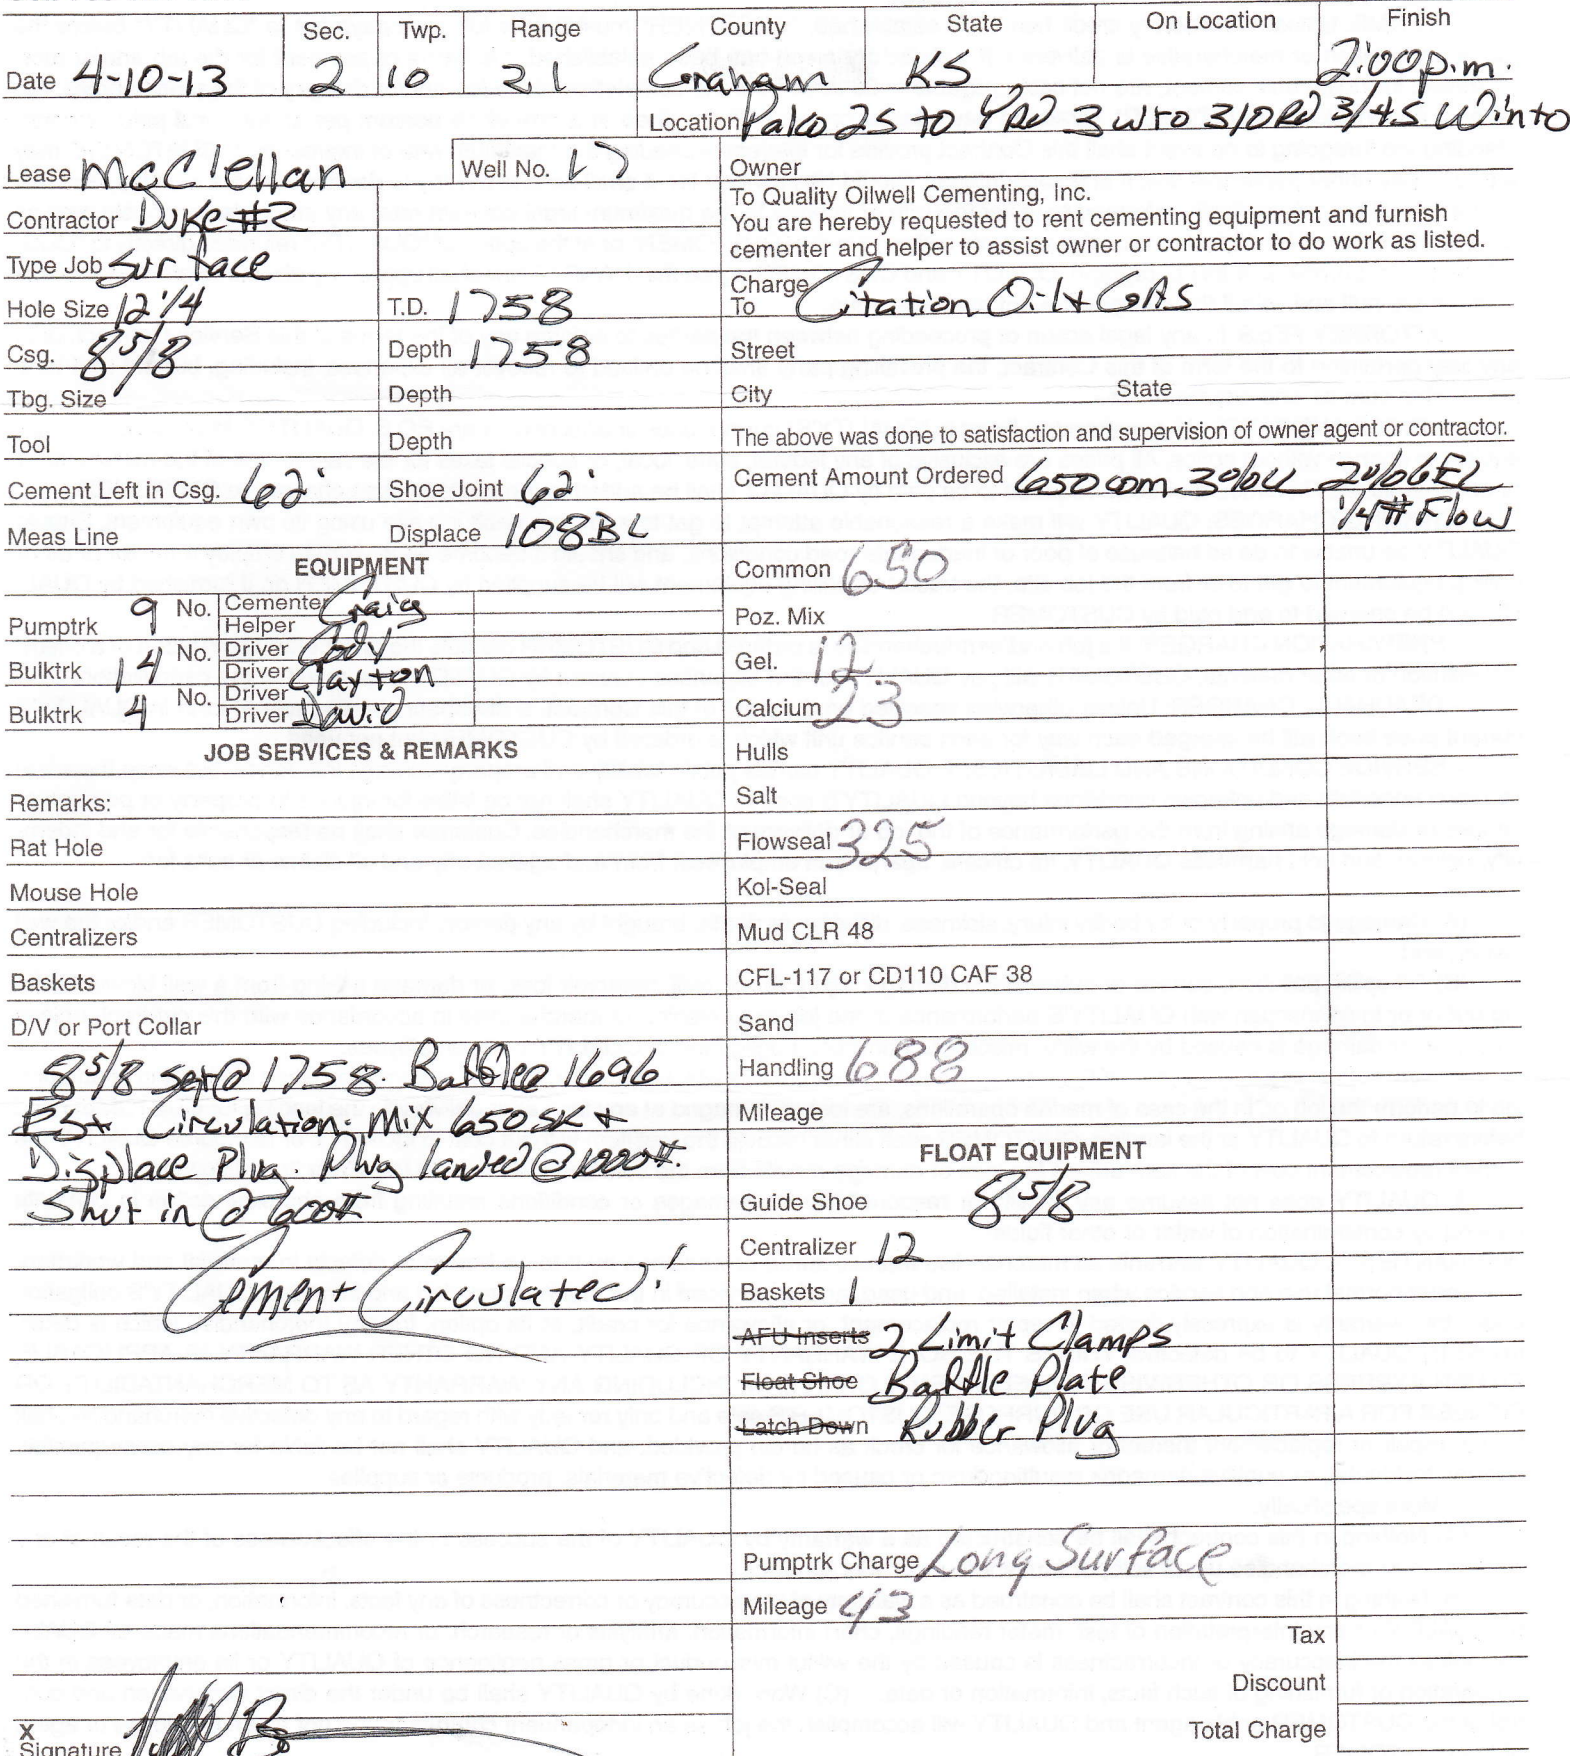 Sec. Twp. Range County State On Location Finish
Date 4-10-13 2 10 21 Graham KS 2:00p.m.
Location Palco 2S to YRD 3 W to 310 RD 3/4S W into
Lease McClellan Well No. 17 Owner
Contractor Duke #2
Type Job Surface
Hole Size 12 1/4 T.D. 1758
Csg. 8 5/8 Depth 1758
Tbg. Size Depth
Tool Depth
Cement Left in Csg. 62' Shoe Joint 62'
Meas Line Displace 108BL
EQUIPMENT
Pumptrk 9 No. Cementer Craig
Helper
Bulktrk 14 No. Driver Cody
Driver Clayton
Bulktrk 4 No. Driver
Driver David
JOB SERVICES & REMARKS
Remarks:
Rat Hole
Mouse Hole
Centralizers
Baskets
D/V or Port Collar
8 5/8 set @ 1758. Baffle @ 1696
Est Circulation. Mix 650 SK +
Displace Plug. Plug landed @ 1000#.
Shut in @ 600#
Cement Circulated!
X
Signature
To Quality Oilwell Cementing, Inc.
You are hereby requested to rent cementing equipment and furnish
cementer and helper to assist owner or contractor to do work as listed.
Charge To Citation Oil + GAS
Street
City State
The above was done to satisfaction and supervision of owner agent or contractor.
Cement Amount Ordered 650 com 3%CC 2%GEL
1/4# Flow
Common 650
Poz. Mix
Gel. 12
Calcium 23
Hulls
Salt
Flowseal 325
Kol-Seal
Mud CLR 48
CFL-117 or CD110 CAF 38
Sand
Handling 688
Mileage
FLOAT EQUIPMENT
Guide Shoe 8 5/8
Centralizer 12
Baskets 1
AFU Inserts 2 Limit Clamps
Float Shoe Baffle Plate
Latch Down Rubber Plug
Pumptrk Charge Long Surface
Mileage 43
Tax
Discount
Total Charge